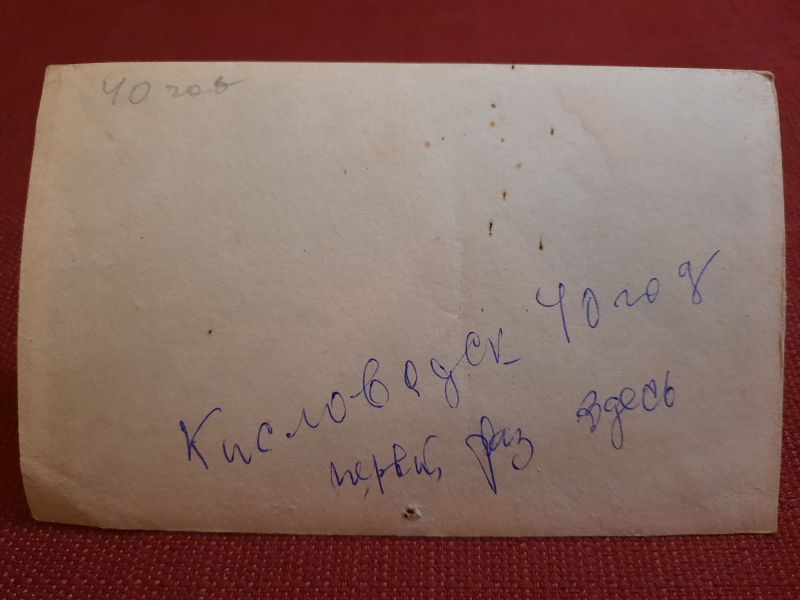 40 год
Кисловодск 40 год
первый раз здесь